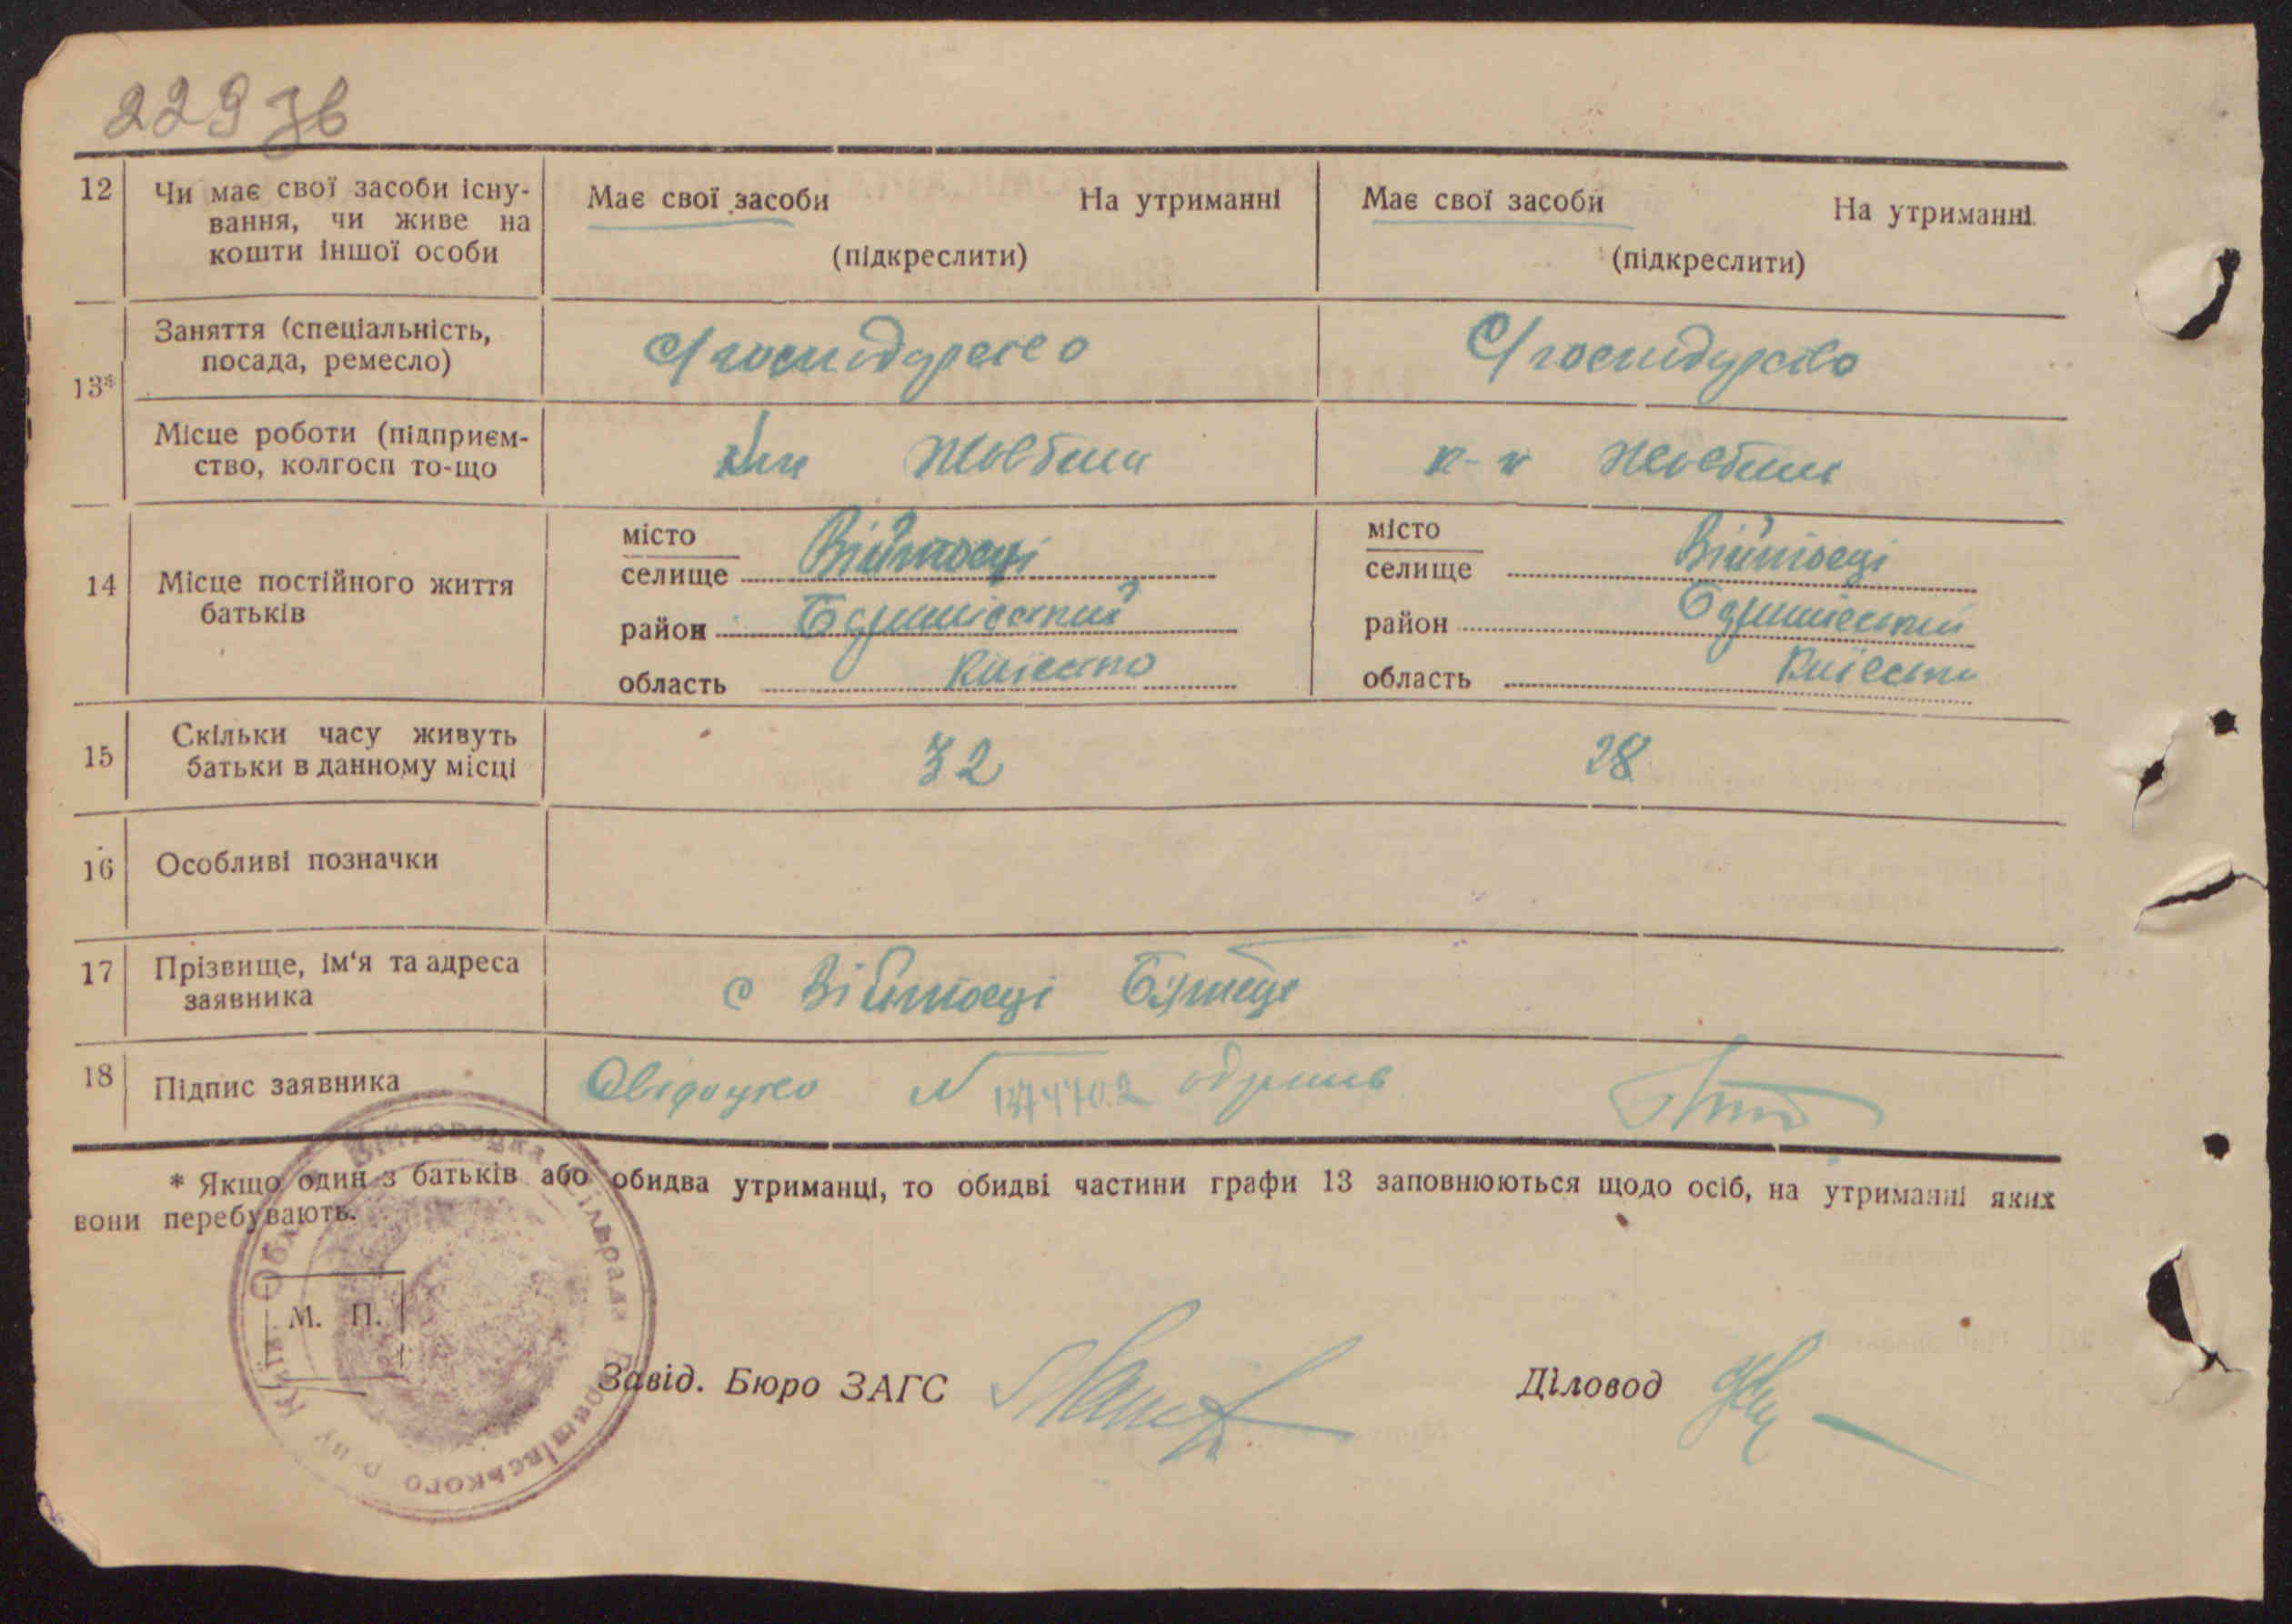 229 зв
12 Чи має свої засоби існу-
вання, чи живе на
кошти іншої особи
Має свої засоби На утриманні
(підкреслити)
Має свої засоби На утриманні
(підкреслити)
13*
Заняття (спеціальність,
посада, ремесло)
С/господарство
С/господарство
Місце роботи (підприєм-
ство, колгосп то-що
Жовтень
к-п Жовтень
14 Місце постійного життя
батьків
місто
селище Війтовці
район
область Київська
місто
селище Війтовці
район
область Київська
15 Скільки часу живуть
батьки в данному місці
32
28
16 Особливі позначки
17 Прізвище, ім'я та адреса
заявника
с Війтовці
18 Підпис заявника
Свідоцтво N одержав
* Якщо один з батьків або обидва утриманці, то обидві частини графи 13 заповнюються щодо осіб, на утриманні яких
вони перебувають.
М. П.
Завід. Бюро ЗАГС
Діловод